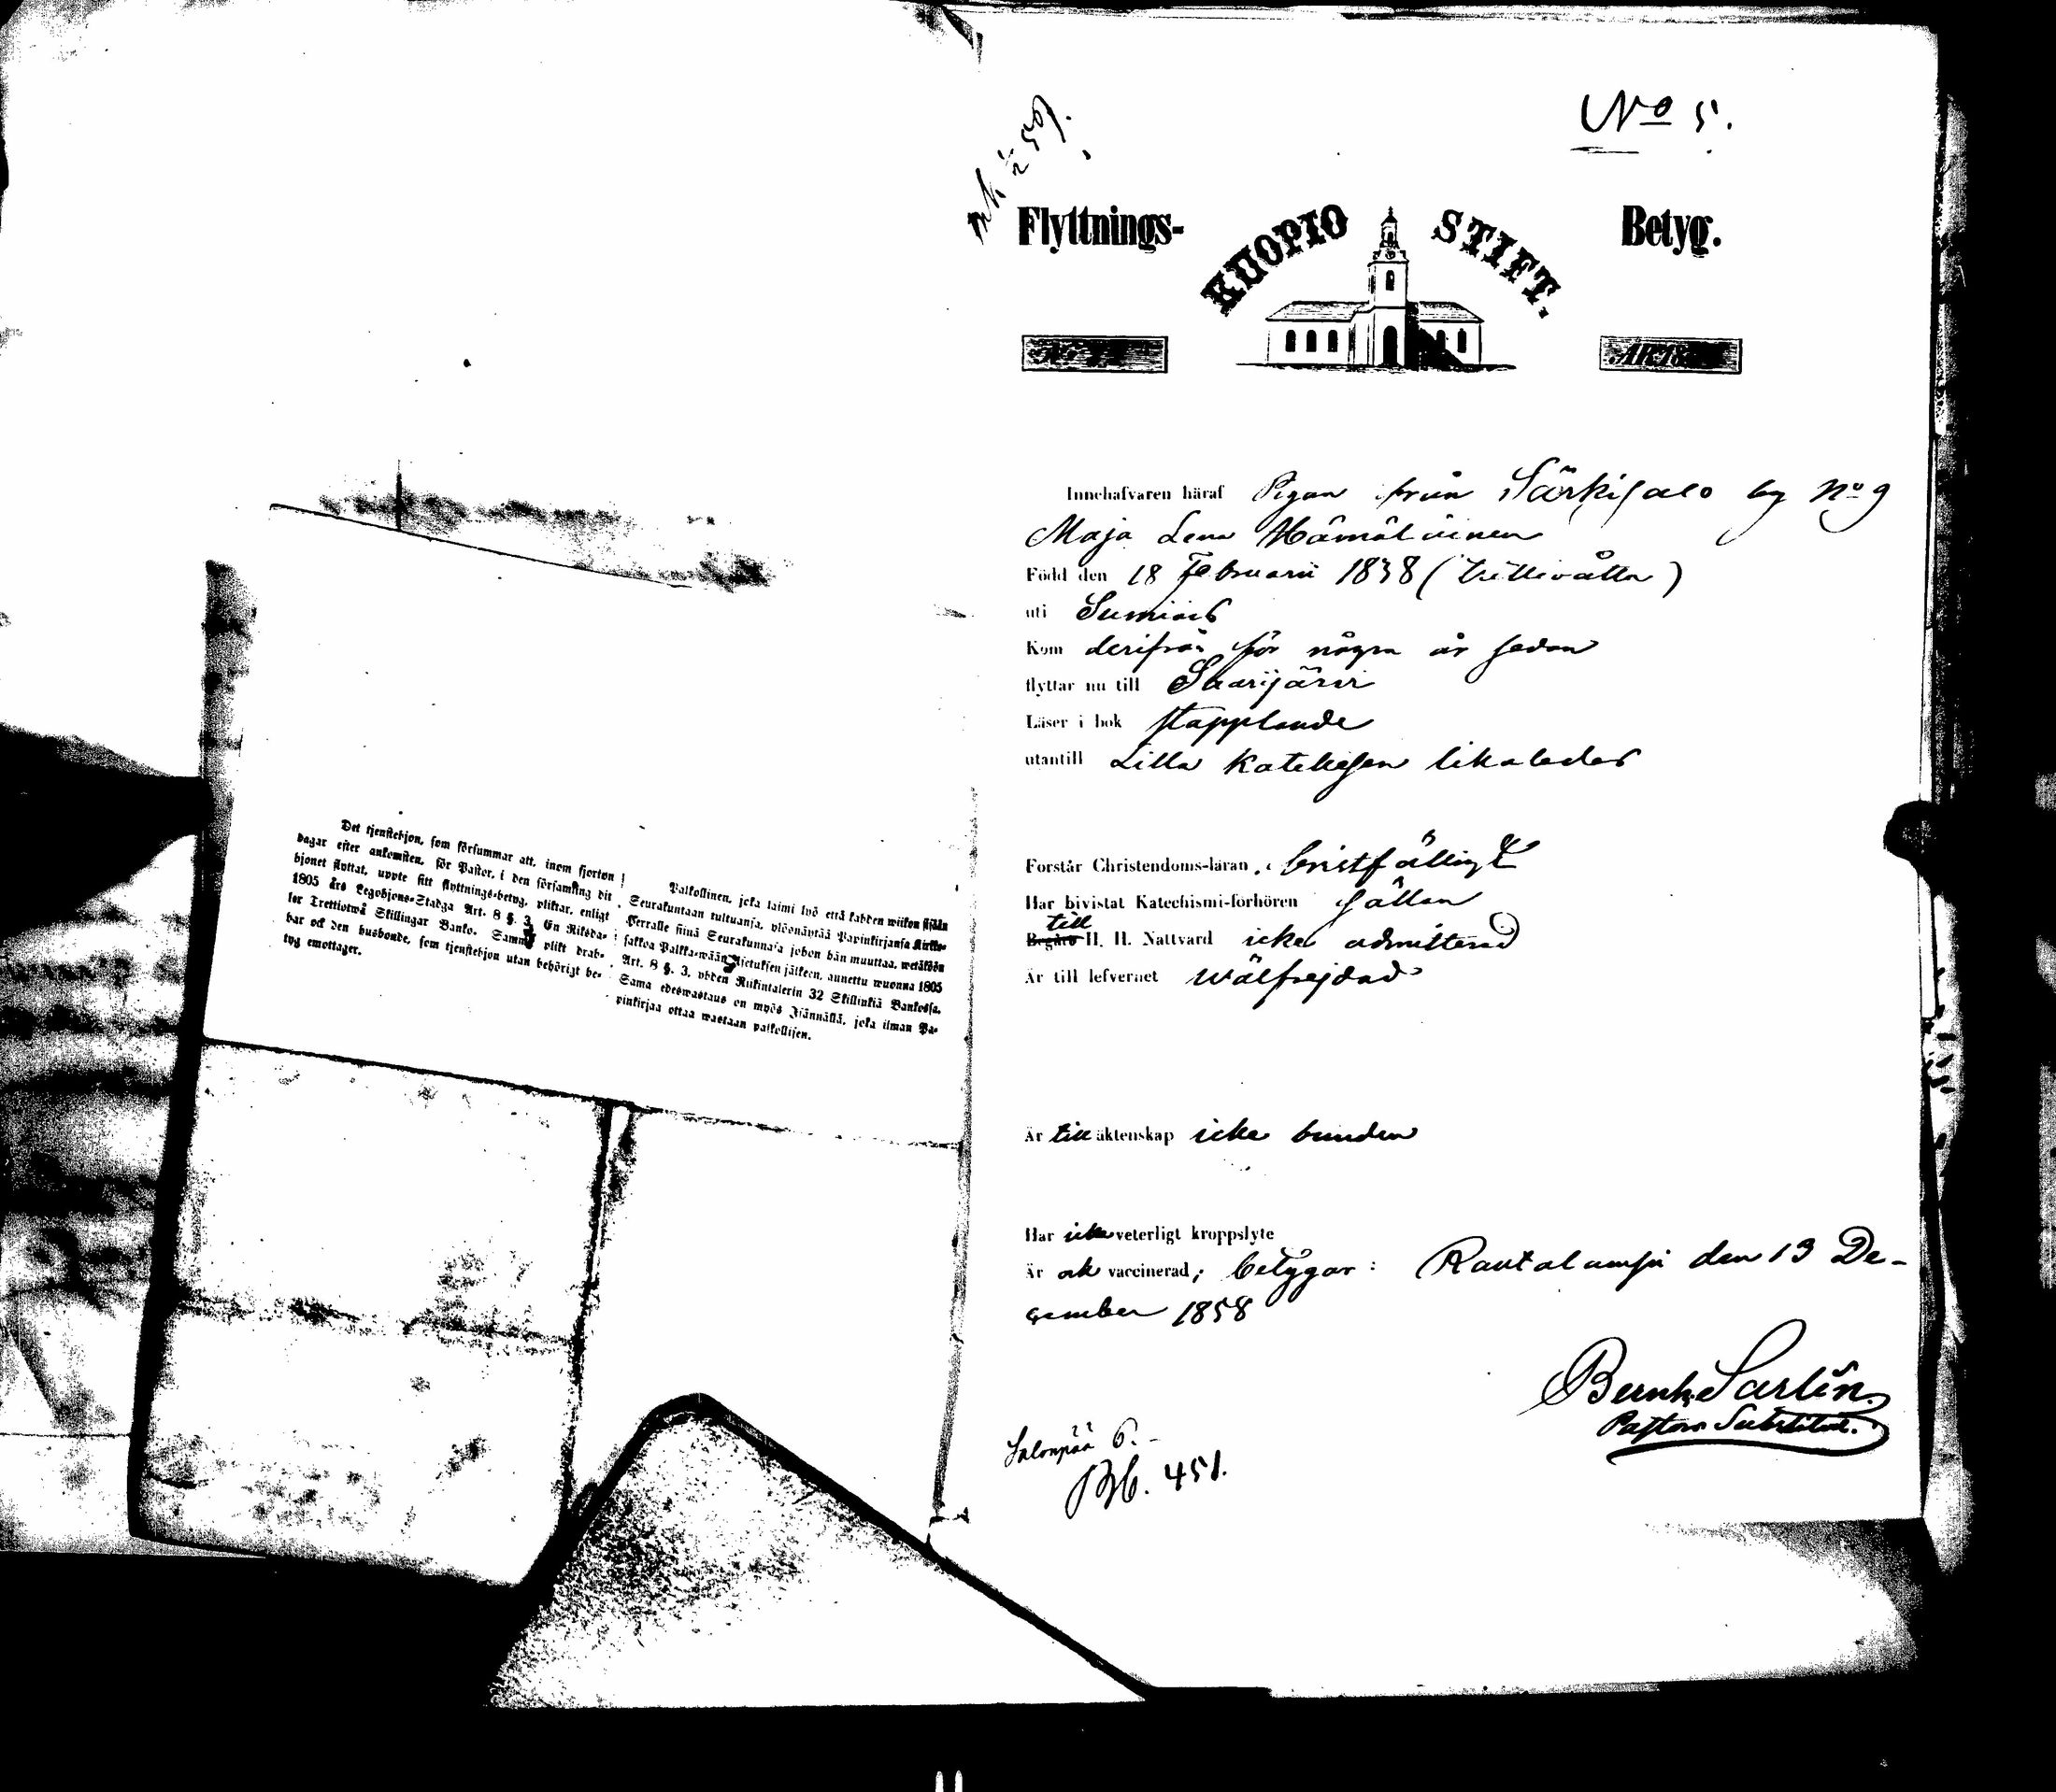 Det tjenstehjon, som försummar att, inom fjorton
dagar efter ankomsten, för Pastor, i den församling dit
hjonet flyttat, uppte sitt flyttnings-betyg, pliktar, enligt
1805 års Legohjons-Stadga Art. 8 §. 3. En Riksda-
ler Trettiotwå Skillingar Banko. Samma plikt drab-
bar ock den husbonde, som tjenstehjon utan behörigt be-
tyg emottager.
Palkollinen, joka laimi lyö että kahden wiikon sisään
Seurakuntaan tultuansa, ylösnäyttää Papinkirjansa Kirkko-
Herralle siinä Seurakunnasa johon hän muuttaa, wetäköön
sakkoa Palkka-wään Asetuksen jälkeen, annettu wuonna 1805
Art. 8 §. 3. yhden Riikintalerin 32 Skillinkiä Bankossa.
Sama edeswastaus on myös Isännällä, joka ilman Pa-
pinkirjaa ottaa wastaan palkollisen.
No 5.
Flyttnings- KUOPIO STIFT. Betyg.
No ÅR 18
Innehafvaren häraf Pigan från Särkisalo by No 9
Maja Lena Hämäläinen
Född den 18 Februarii 1838 (trettiåtta)
uti Sumiais
Kom derifrån för några år sedan
flyttar nu till Saarijärvi
Läser i bok stapplande
utantill Lilla Katekesen likaledes
Förstår Christendoms-läran, bristfälligt
Har bivistat Katechismi-förhören sällan
till
Begått H. H. Nattvard icke admitterad
Är till lefvernet wälfrejdad
Är till äktenskap icke bunden
Har icke veterligt kroppslyte
Är ock vaccinerad; betygar: Rautalampi den 13 De-
cember 1858
Bernh. Sarlin
Pastors Substitut.
Salonpää 6.
Kb. 451.